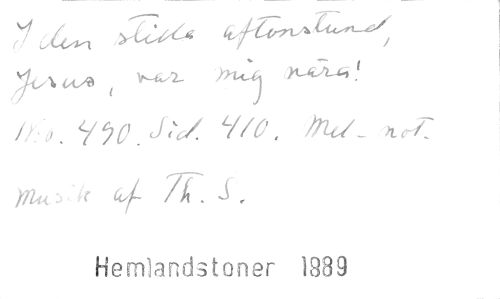 I den stilla aftonstund,
Jesus, var mig nära!
No. 490. Sid. 410. Mel-not.
Musik af Th. S.
Hemlandstoner 1889